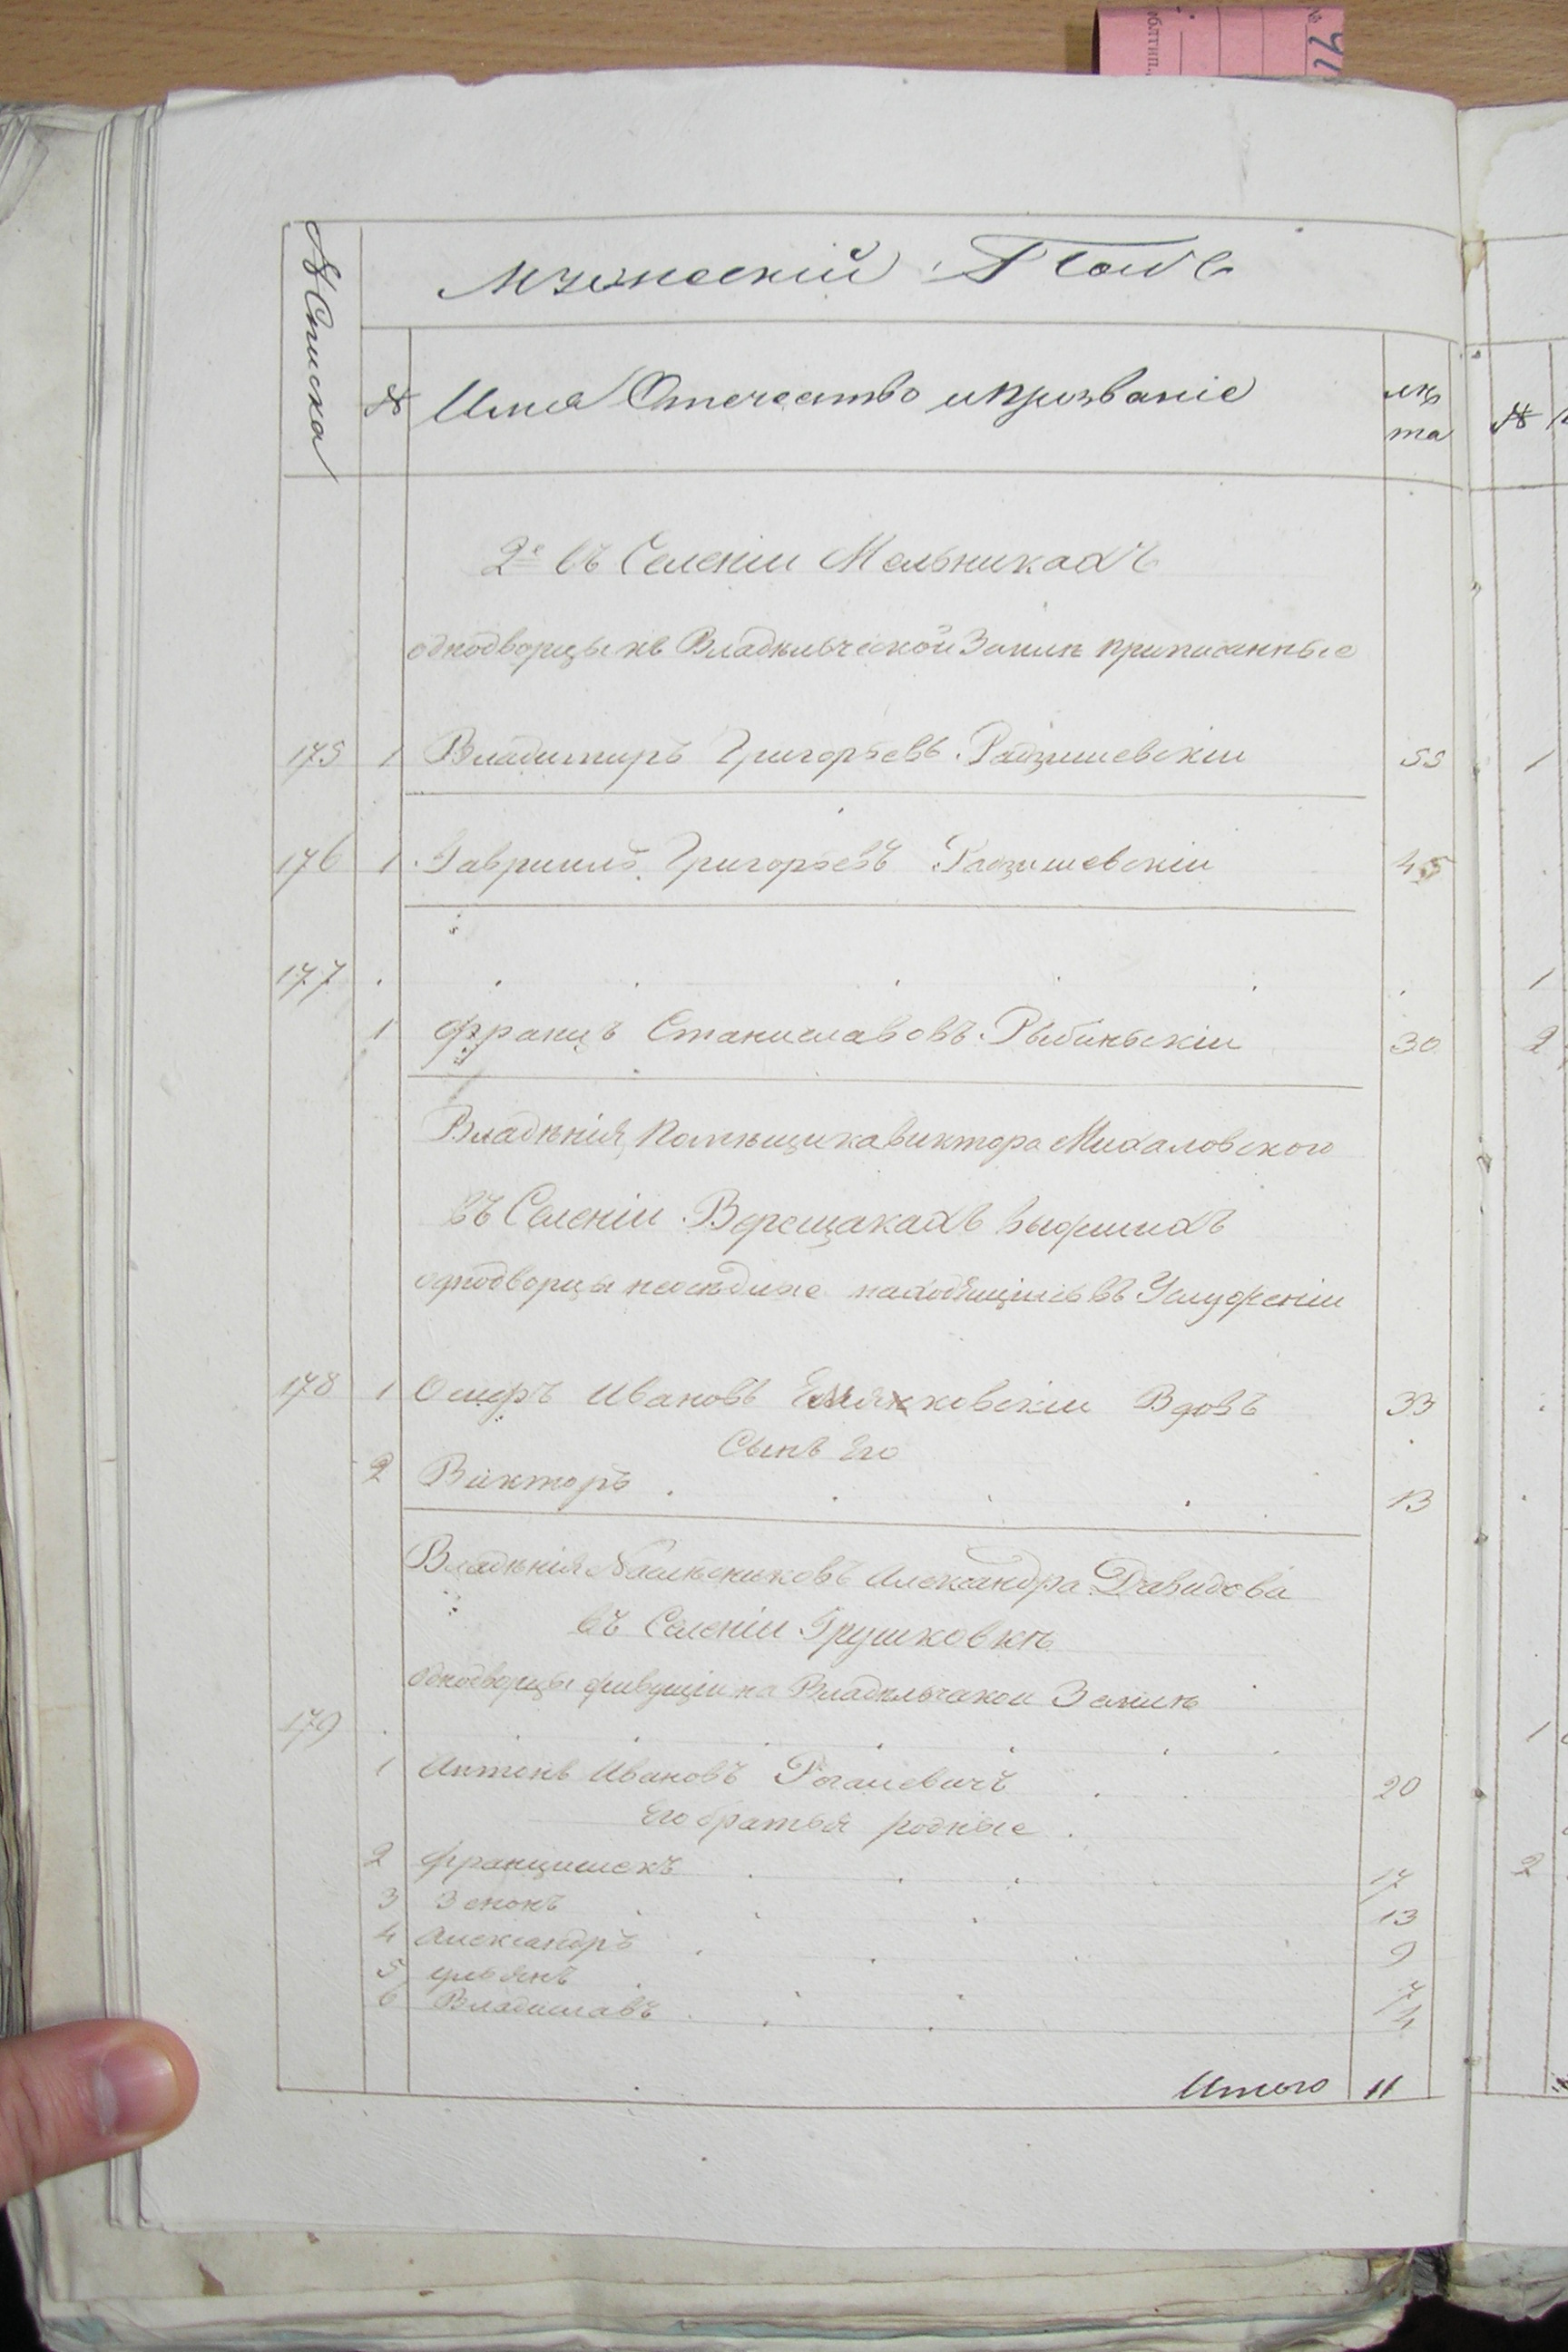 № Списка
мужескій Полъ
№ Имя Отечество и прозваніе лѣ
та
№
2е въ Селеніи Мельникахъ
однодворцы къ Владѣльческой Земли приписанные
175 1 Владимиръ Григорьевъ Радзишевскіи 55 1
176 1 Гавриилъ Григорьевъ Радзишевскіи 45
177 1
1 францъ Станиславовъ Рыбинскіи 30 2
Владѣнія Помѣщика Виктора Михаловского
въ Селеніи Верещакахъ
однодворцы неосѣдлые находящіись въ Услуженіи
178 1 Ивановъ Вдовъ 33
Сынъ Его
2 Викторъ 13
Владѣнія Наслѣдниковъ Александра Давидова
въ Селеніи Грушковкѣ
Однодворцы живущіи на Владѣльческои Земли
179 1
1 Антонъ Ивановъ 20
Его братья родные
2 францишекъ 17 2
3 Зенонъ 13
4 Александръ 9
5 7
6 Владиславъ 4
Итого 11